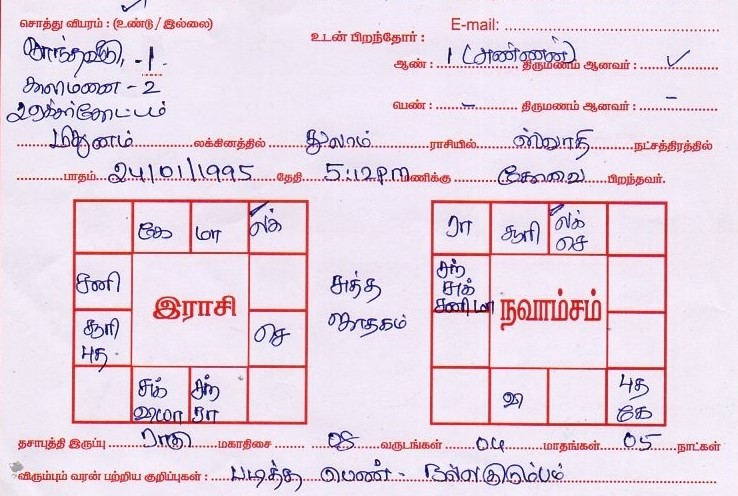 சொத்து விபரம் : (உண்டு / இல்லை)
E-mail:
சொந்தவீடு, - 1
உடன் பிறந்தோர் :
ஆண் : 1 (அண்ணன்) திருமணம் ஆனவர் : ✓
காலிமனை - 2
பெண் : - திருமணம் ஆனவர் : -
மிதுனம் லக்கினத்தில் துலாம் ராசியில் ஸ்வாதி நட்சத்திரத்தில்
பாதம் 24/01/1995 தேதி 5:12 PM மணிக்கு கோவை பிறந்தவர்.
கே மா லக்
சனி
இராசி
சூரி
புத
செ
சுக் சந்
ரா
சுத்த
ஜாதகம்
ரா சூரி லக்
செ
சந்
சுக்
சனி மா
நவாம்சம்
புத
கே
தசாபுத்தி இருப்பு ராகு மகாதிசை 08 வருடங்கள் 04 மாதங்கள் 05 நாட்கள்
விரும்பும் வரன் பற்றிய குறிப்புகள் : படித்த பெண் - நல்லகுடும்பம்